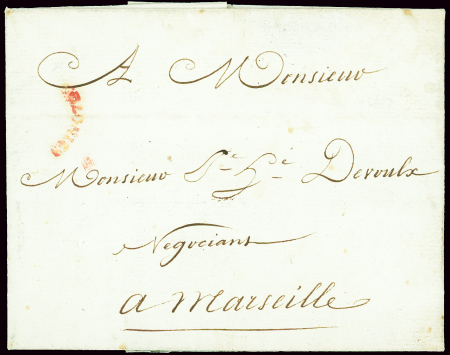 A Monsieur
Monsieur Devoulx
Negociant
a Marseille